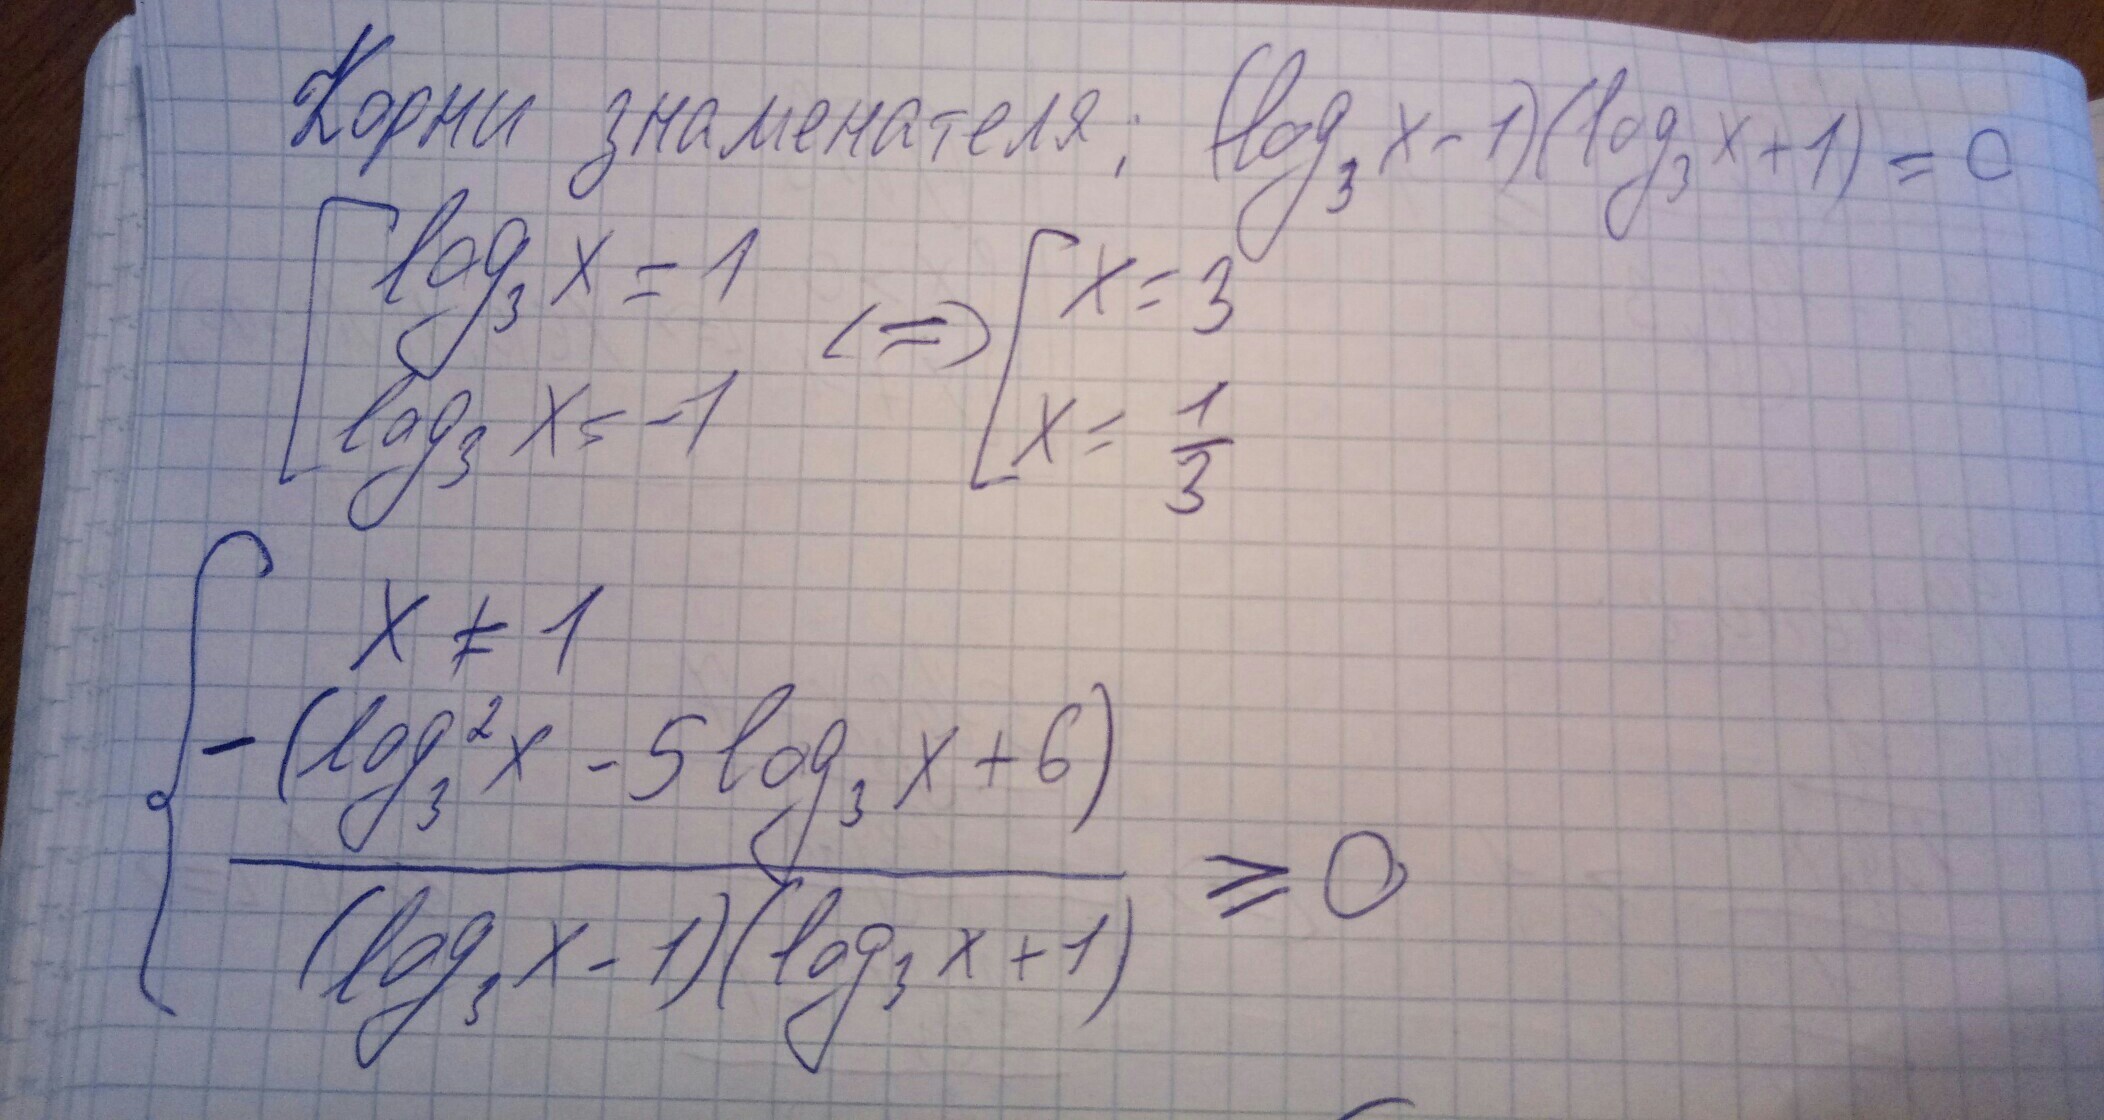 Корни знаменателя: (log₃ x - 1)(log₃ x + 1) = 0
[ log₃ x = 1 <=> [ x = 3
log₃ x = -1 x = 1/3
{ x ≠ 1
-(log₃² x - 5 log₃ x + 6)
≥ 0
(log₃ x - 1)(log₃ x + 1)